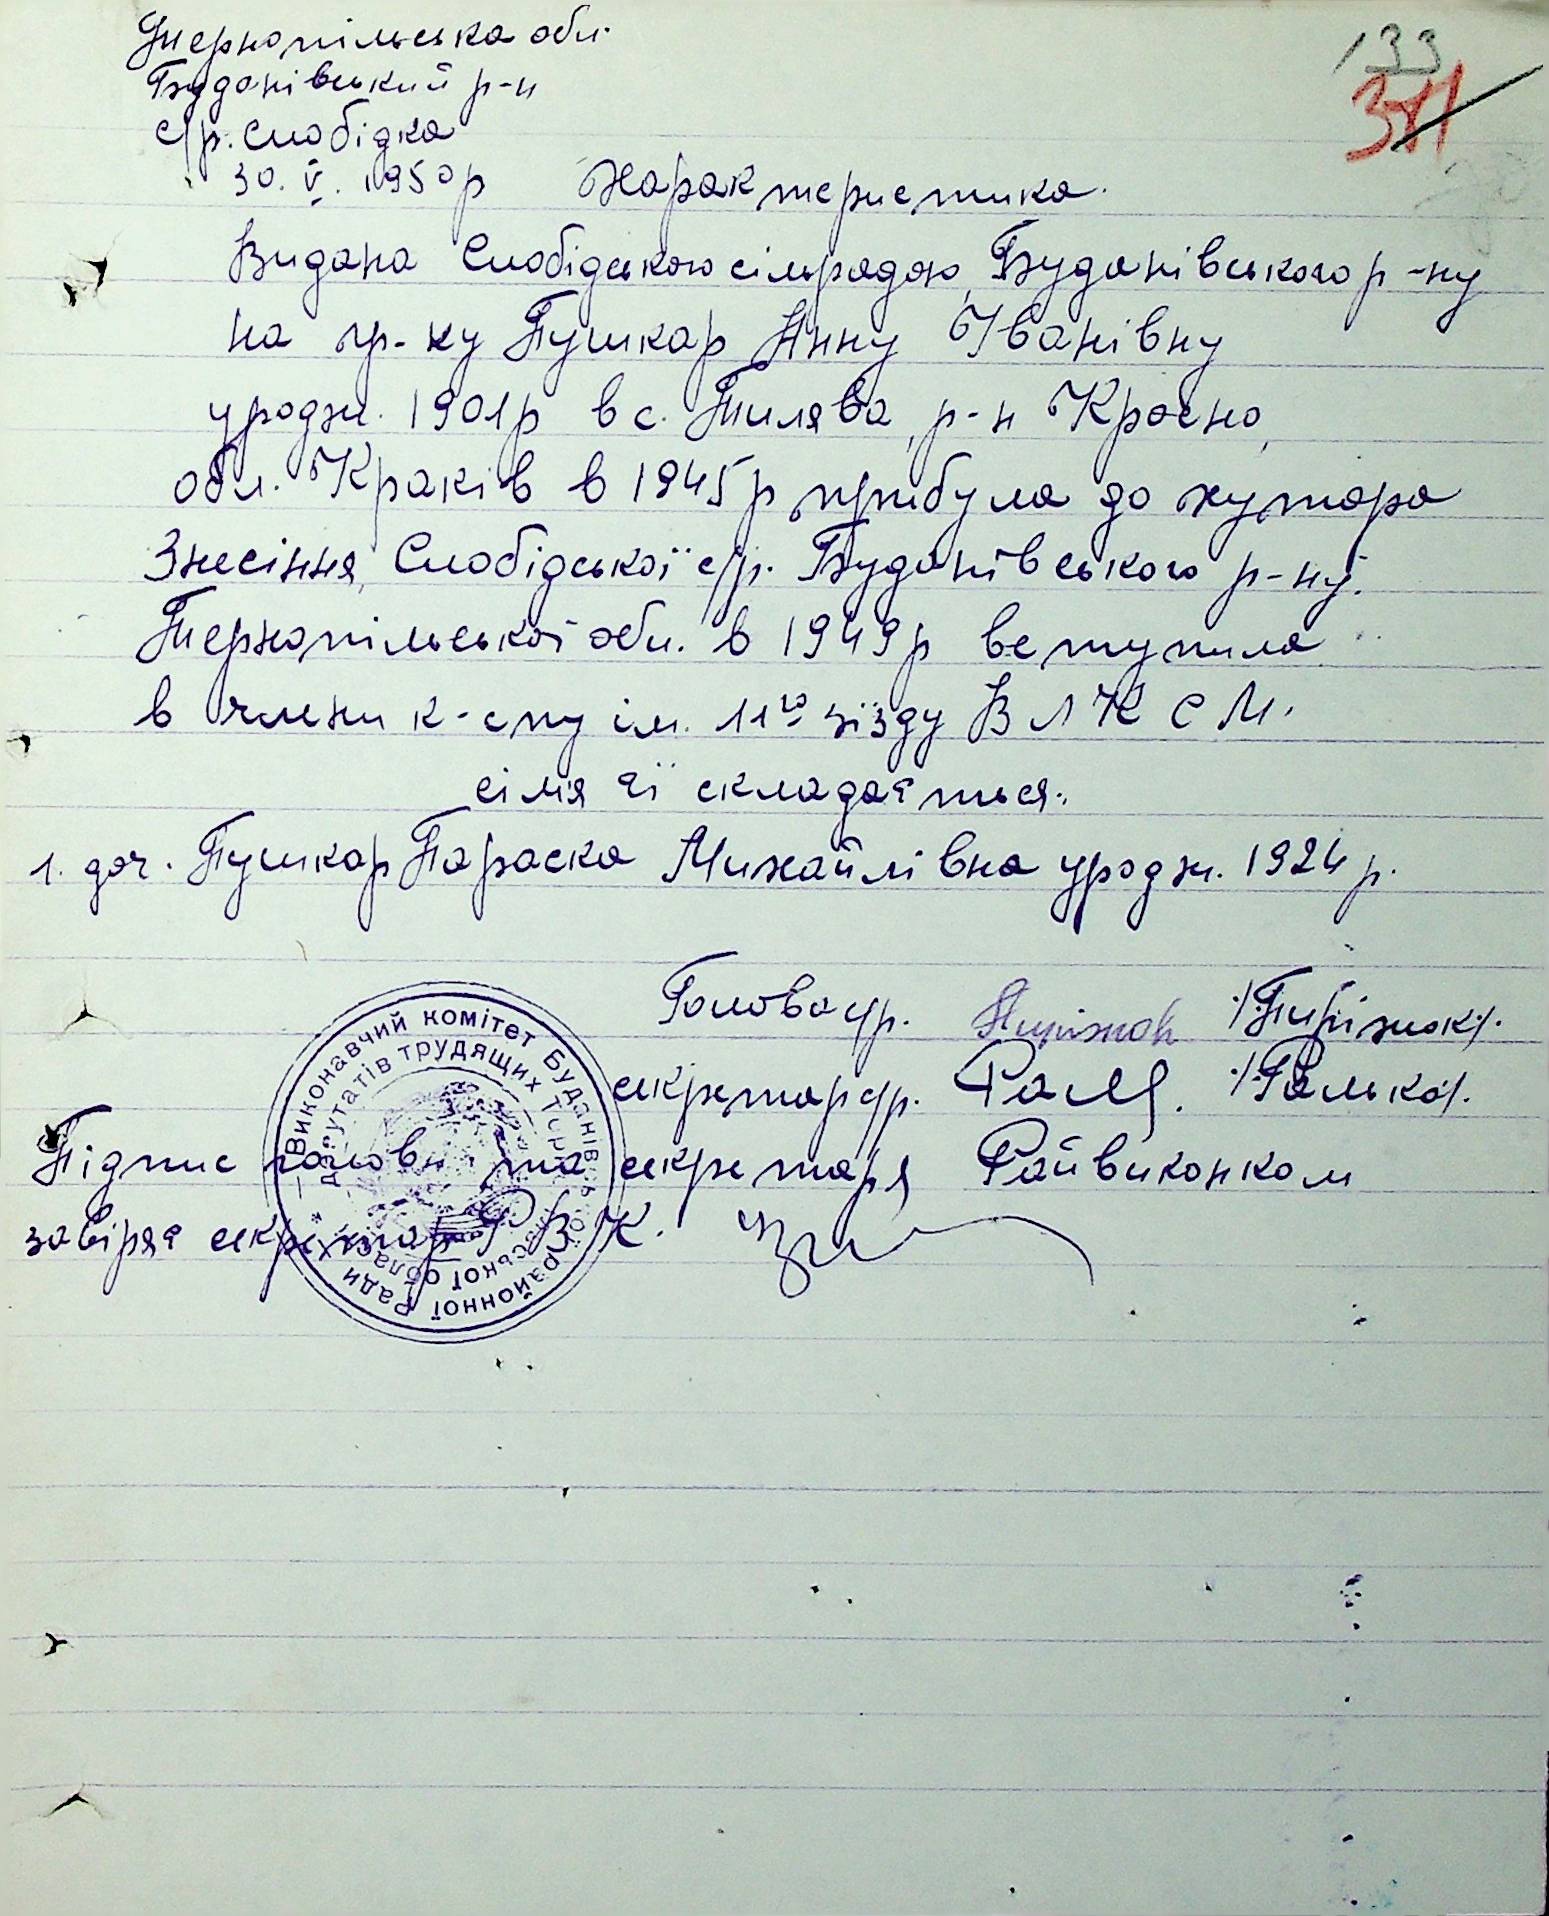 133
311
Тернопільська обл.
Буданівський р-н
с/р. Слобідка
30. V. 1950р Характеристика.
Видана Слобідською сільрадою, Буданівського р-ну
на гр-ку Пушкар Анну Іванівну
уродж. 1901р в с. Тилява, р-н Кросно,
обл. Краків в 1945р прибула до хутора
Знесіння, Слобідської с/р. Буданівського р-ну.
Тернопільської обл. в 1949р вступила
в члени к-спу ім. 11го зїзду ВЛКСМ.
сімя її складається:
1. доч. Пушкар Параска Михайлівна уродж. 1924 р.
Голова с/р. Пиріжок /Пиріжок/.
секретар с/р. /Ралько/.
Підпис голови та секретаря Райвиконком
завіряє секретар Р В К.
Виконавчий комітет Буданівської районної Ради
депутатів трудящих Тернопільської області